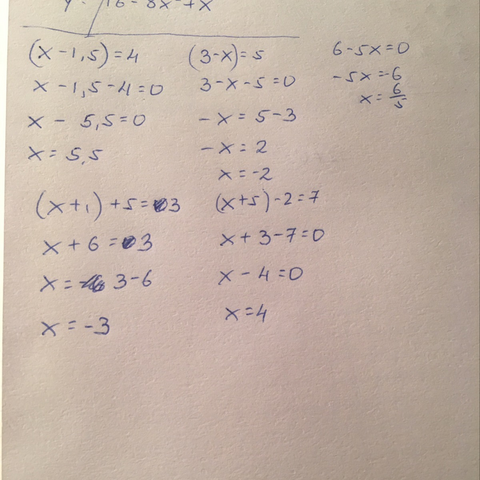 16 - 8x² + x
(x - 1,5) = 4
x - 1,5 - 4 = 0
x - 5,5 = 0
x = 5,5
(3 - x) = 5
3 - x - 5 = 0
-x = 5 - 3
-x = 2
x = -2
6 - 5x = 0
-5x = -6
x = 6/5
(x + 1) + 5 = 3
x + 6 = 3
x = 3 - 6
x = -3
(x + 5) - 2 = 7
x + 3 - 7 = 0
x - 4 = 0
x = 4